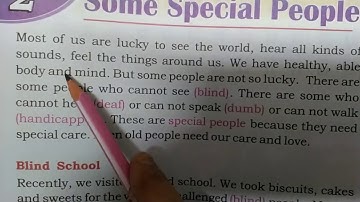 2
Some Special People
Most of us are lucky to see the world, hear all kinds of
sounds, feel the things around us. We have healthy, able
body and mind. But some people are not so lucky. There are
some people who cannot see (blind). There are some who
cannot hear (deaf) or can not speak (dumb) or can not walk
(handicapped). These are special people because they need
special care. Even old people need our care and love.
Blind School
Recently, we visited school. We took biscuits, cakes
and sweets for the challenged (blind)